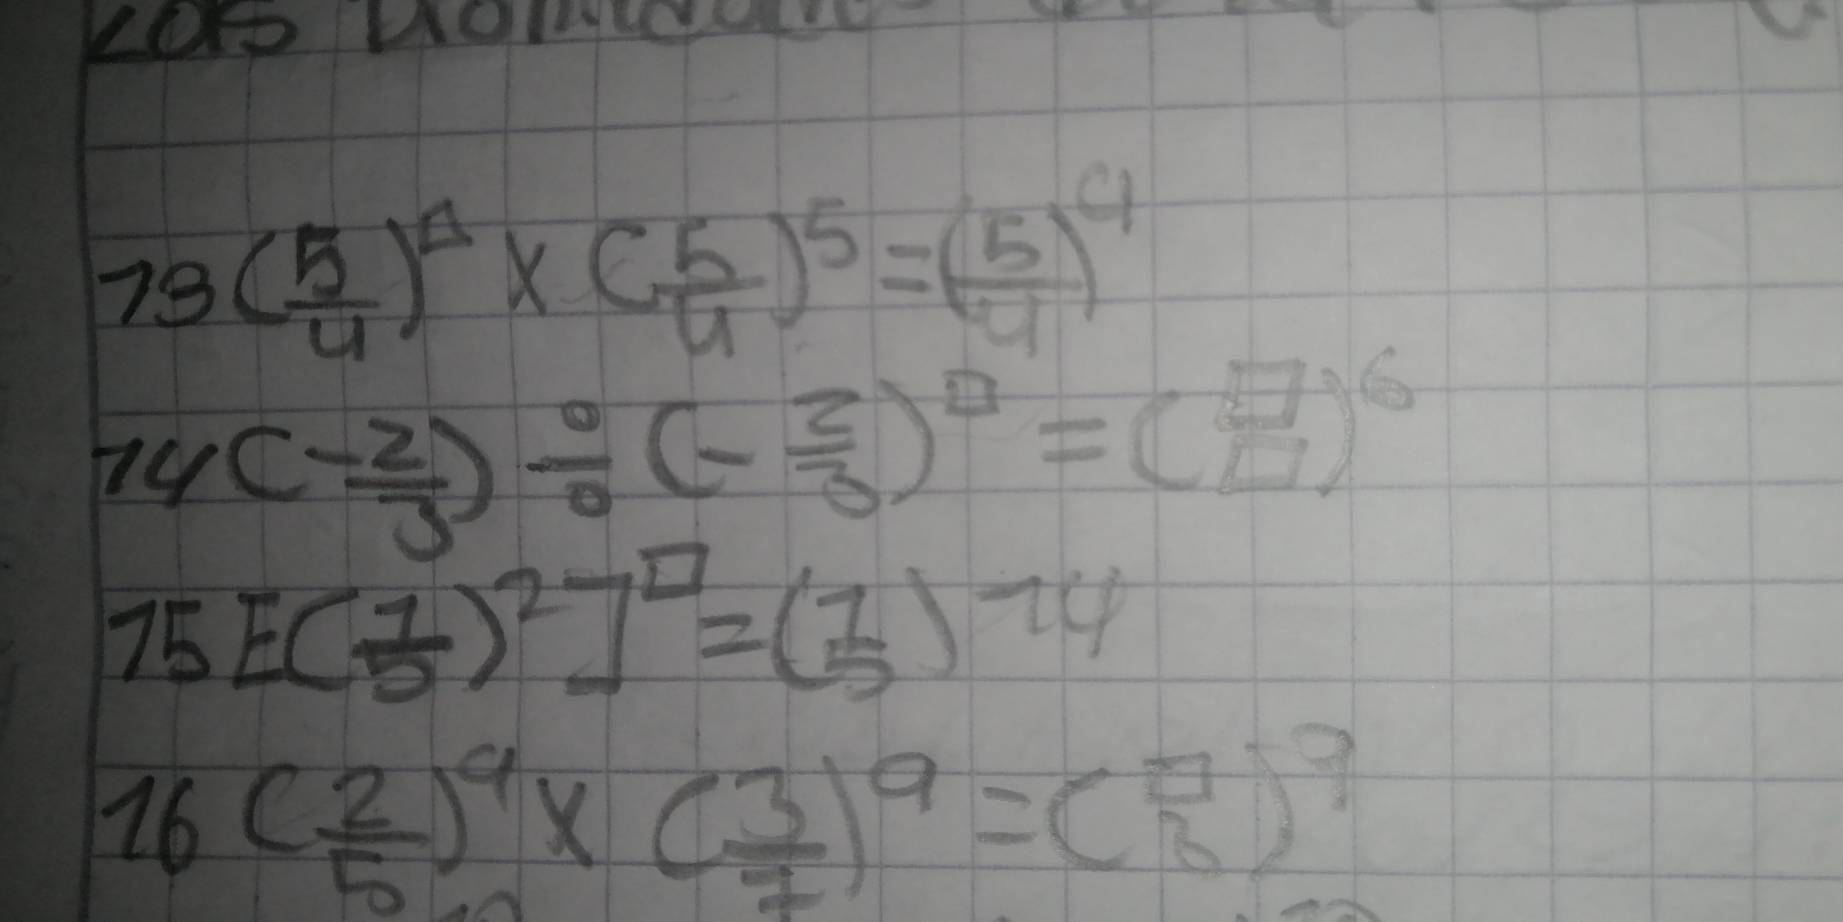 Los
13 (5/4)^□ x (5/4)^5 = (5/4)^9
14 (-2/3) ÷ (-2/3)^□ = (□/□)^6
15 [(1/5)^2]^□ = (1/5)^-14
16 (2/5)^9 x (3/7)^9 = (□/3)^9